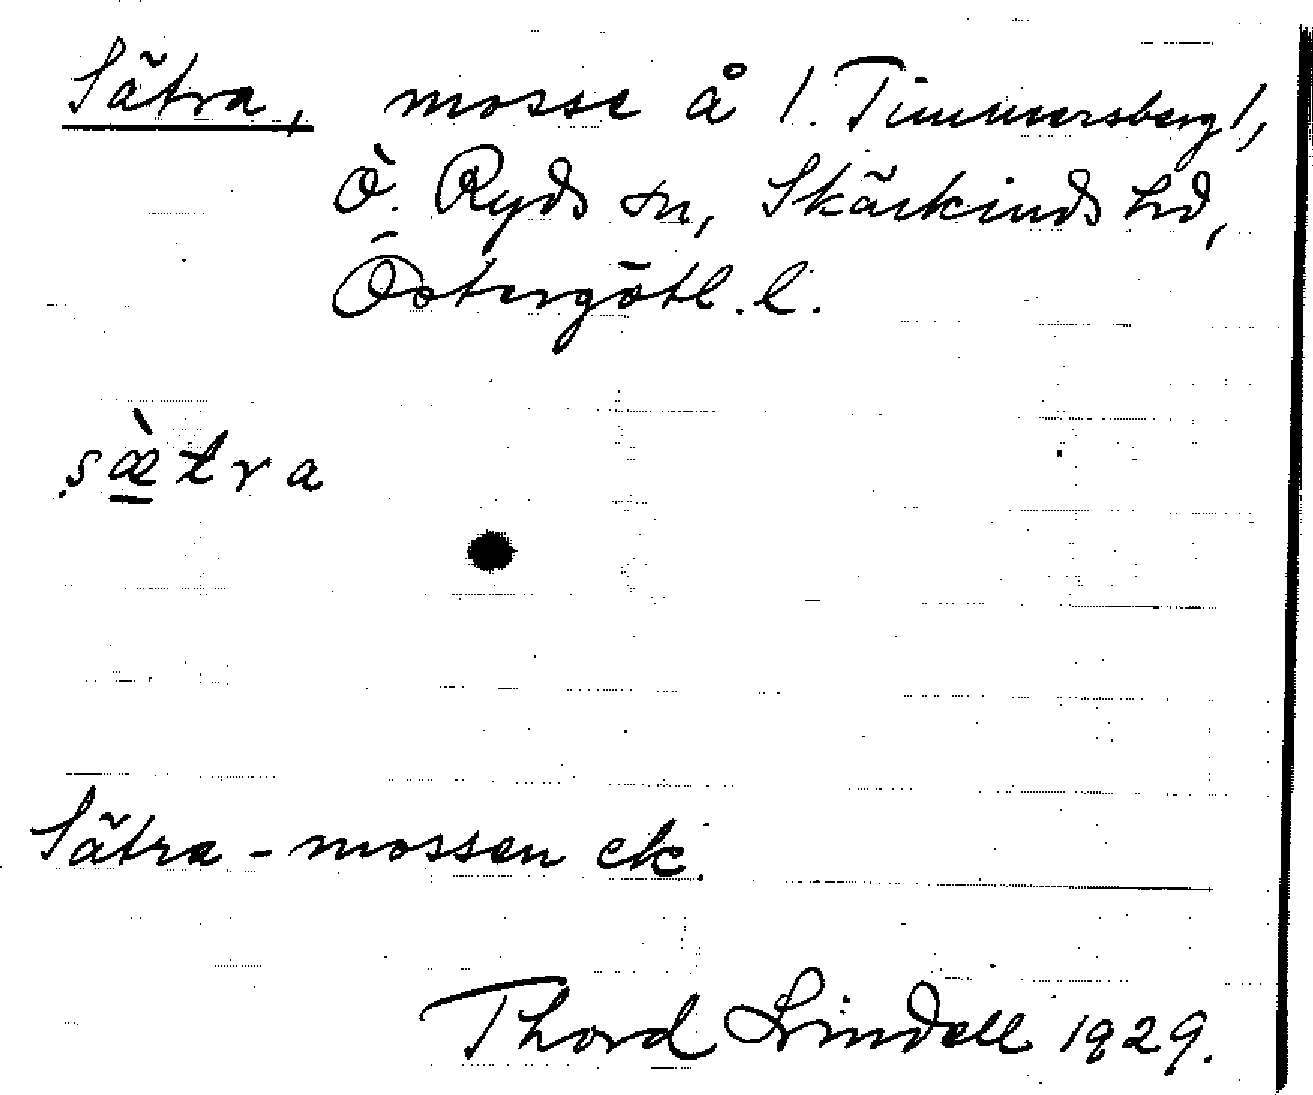 Sätra, mosse å /. Timmersberg/,
Ö. Ryds sn, Skärkinds hd,
Östergötl. l.
sæ̀tra
Sätra-mossen ek.
Thord Lindell 1929.